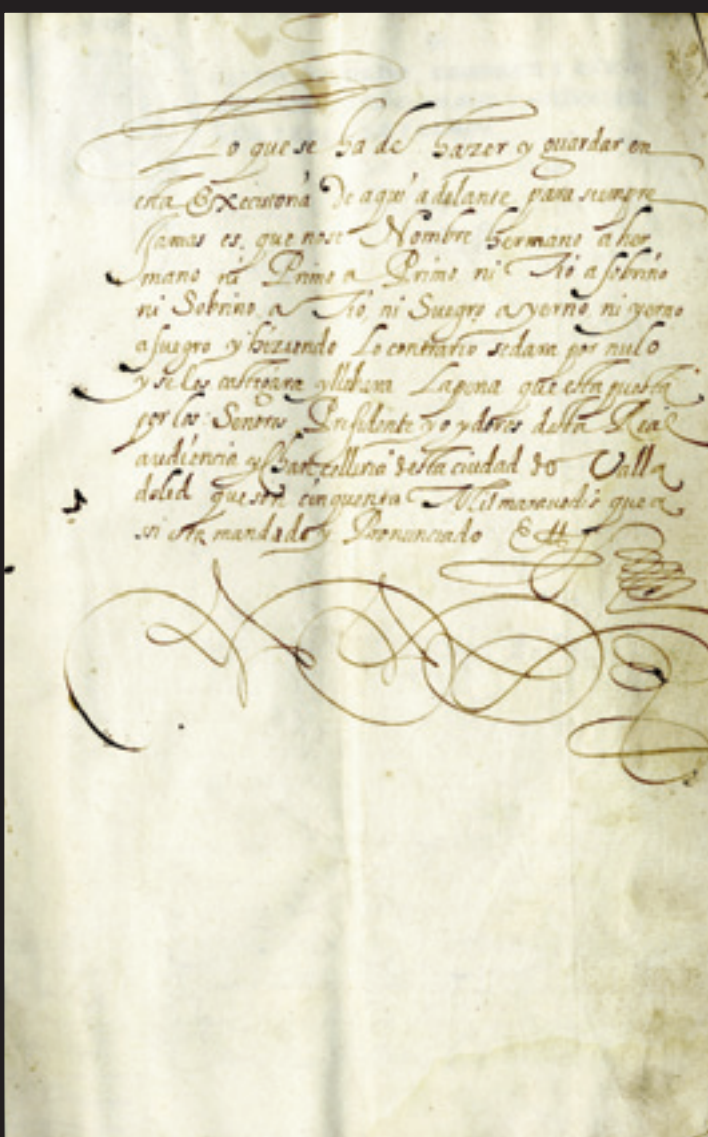 Lo que se ha de hazer y guardar en
esta Executoria De aqui adelante para siempre
Jamas es, que nose Nombre hermano a her
mano ni Primo a Primo ni Tio a sobrino
ni Sobrino a Tio, ni Suegro a yerno, ni yerno
a suegro y hiziendo Lo contrario sedara por nulo
y se los castigara yllebara Lapena que esta puesta
por los Senores Presidente y oydores desta Real
audiencia y chancelleria desta ciudad de Valla
dolid que son cinquenta Mil maravedis que a
si esta mandado y Pronunciado Ett